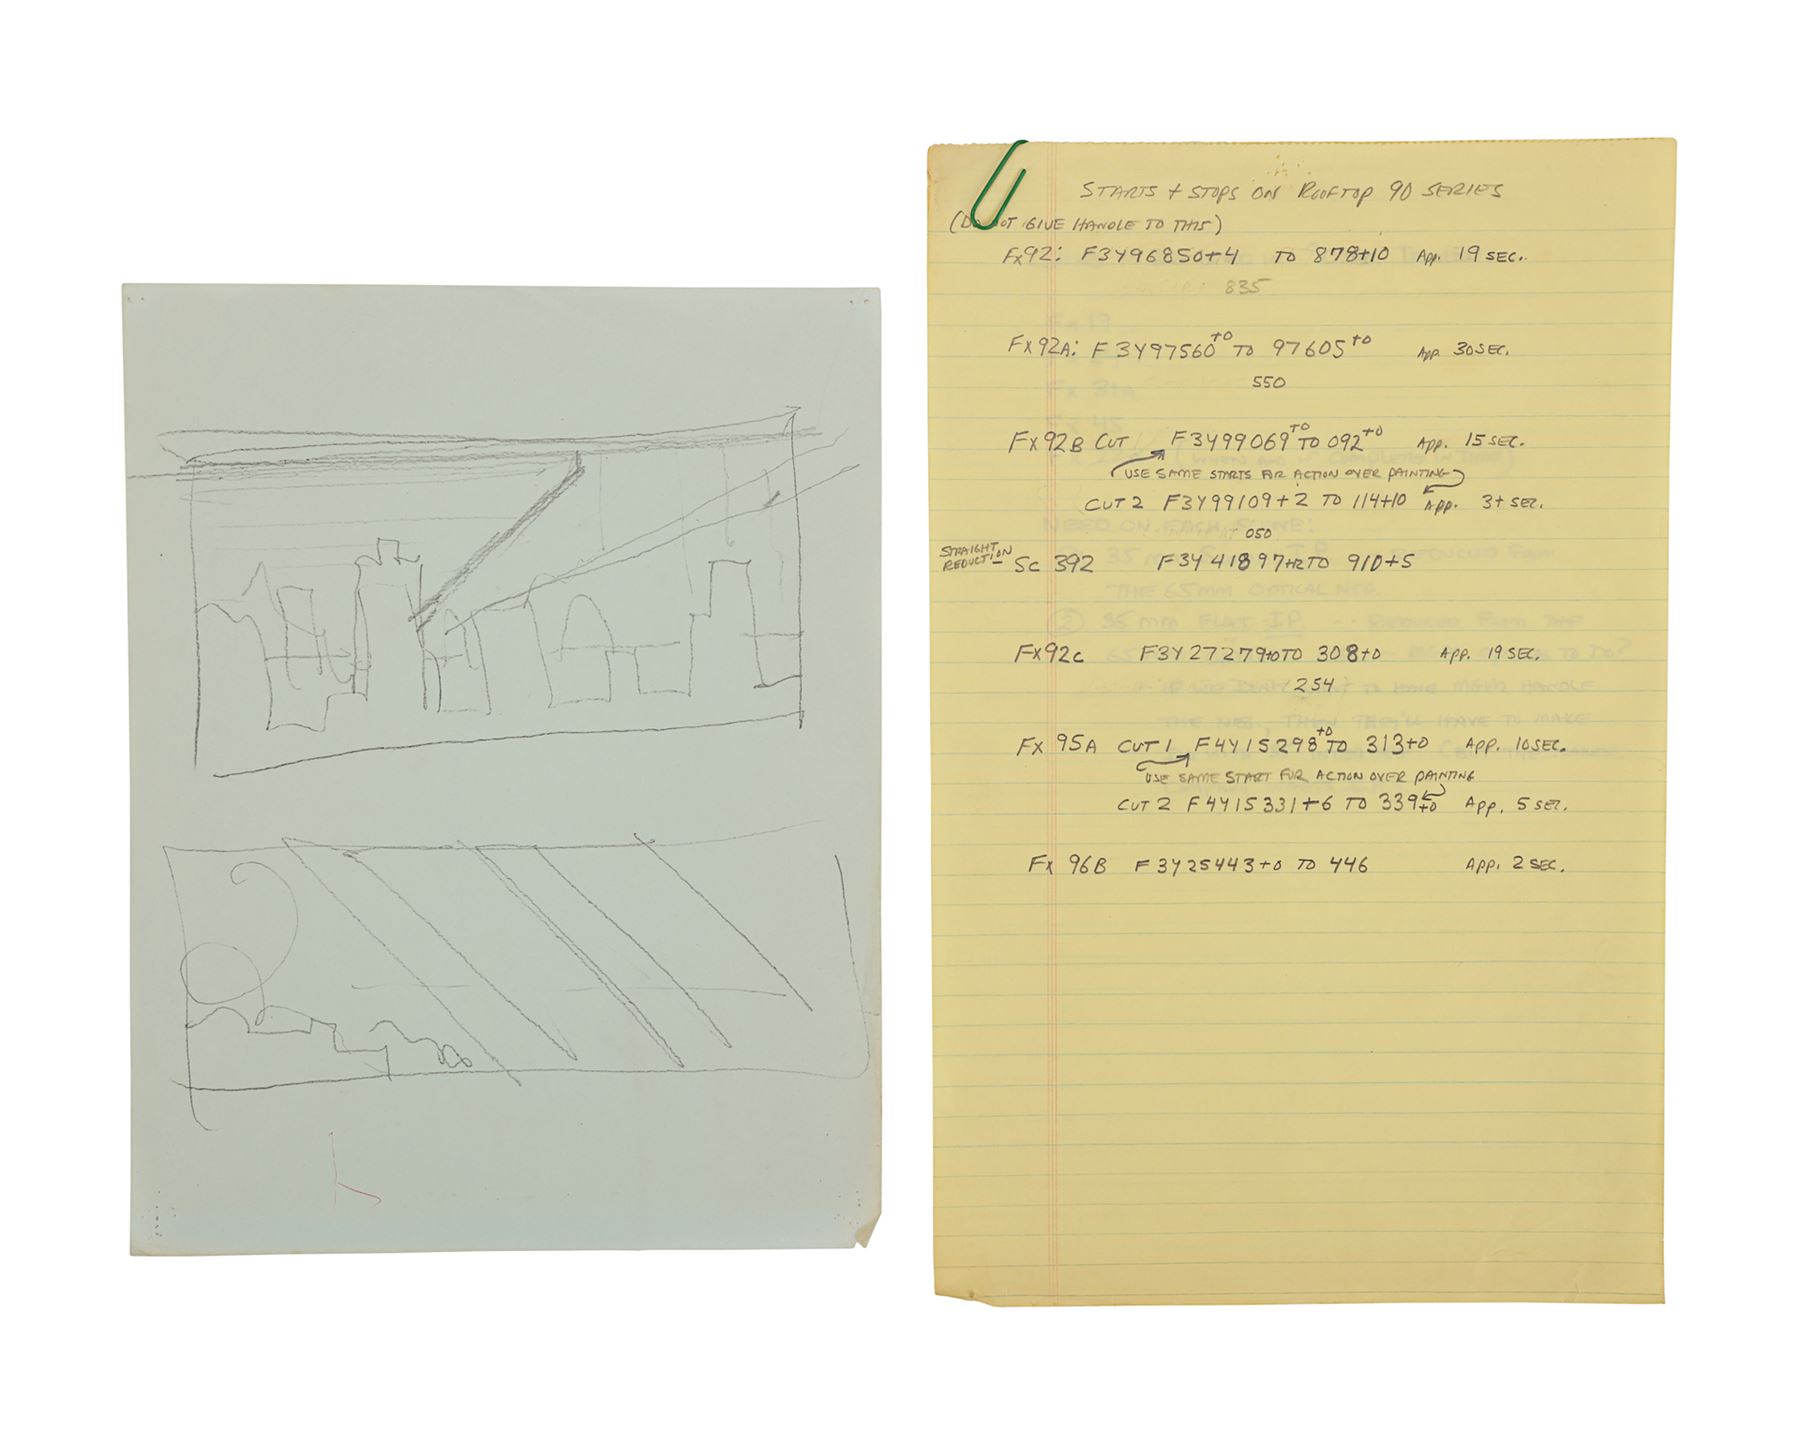 STARTS + STOPS ON ROOFTOP 90 SERIES
(DO NOT GIVE HANDLE TO THIS)
Fx92: F3Y96850+4 TO 878+10 App. 19 SEC.
835
Fx92A: F3Y97560+0 TO 97605+0 App. 30 SEC.
550
Fx92B CUT 1 F3Y99069+0 TO 092+0 App. 15 SEC.
USE SAME STARTS FOR ACTION OVER PAINTING
CUT 2 F3Y99109+2 TO 114+10 App. 3+ SEC.
050
STRAIGHT
REDUCTION
SC 392 F3Y41897+12 TO 910+5
Fx92C F3Y27279+0 TO 308+0 App. 19 SEC.
254
Fx 95A CUT 1 F4Y15298+0 TO 313+0 App. 10 SEC.
USE SAME START FOR ACTION OVER PAINTING
CUT 2 F4Y15331+6 TO 339+0 App. 5 SEC.
Fx 96B F3Y25443+0 TO 446 App. 2 SEC.
Fx 31A
Fx 45
NEED ON EACH SCENE:
THE 65mm OPTICAL NEG.
② 35 mm FLAT I.P.
THE NEG, THEN THEY'LL HAVE TO MAKE